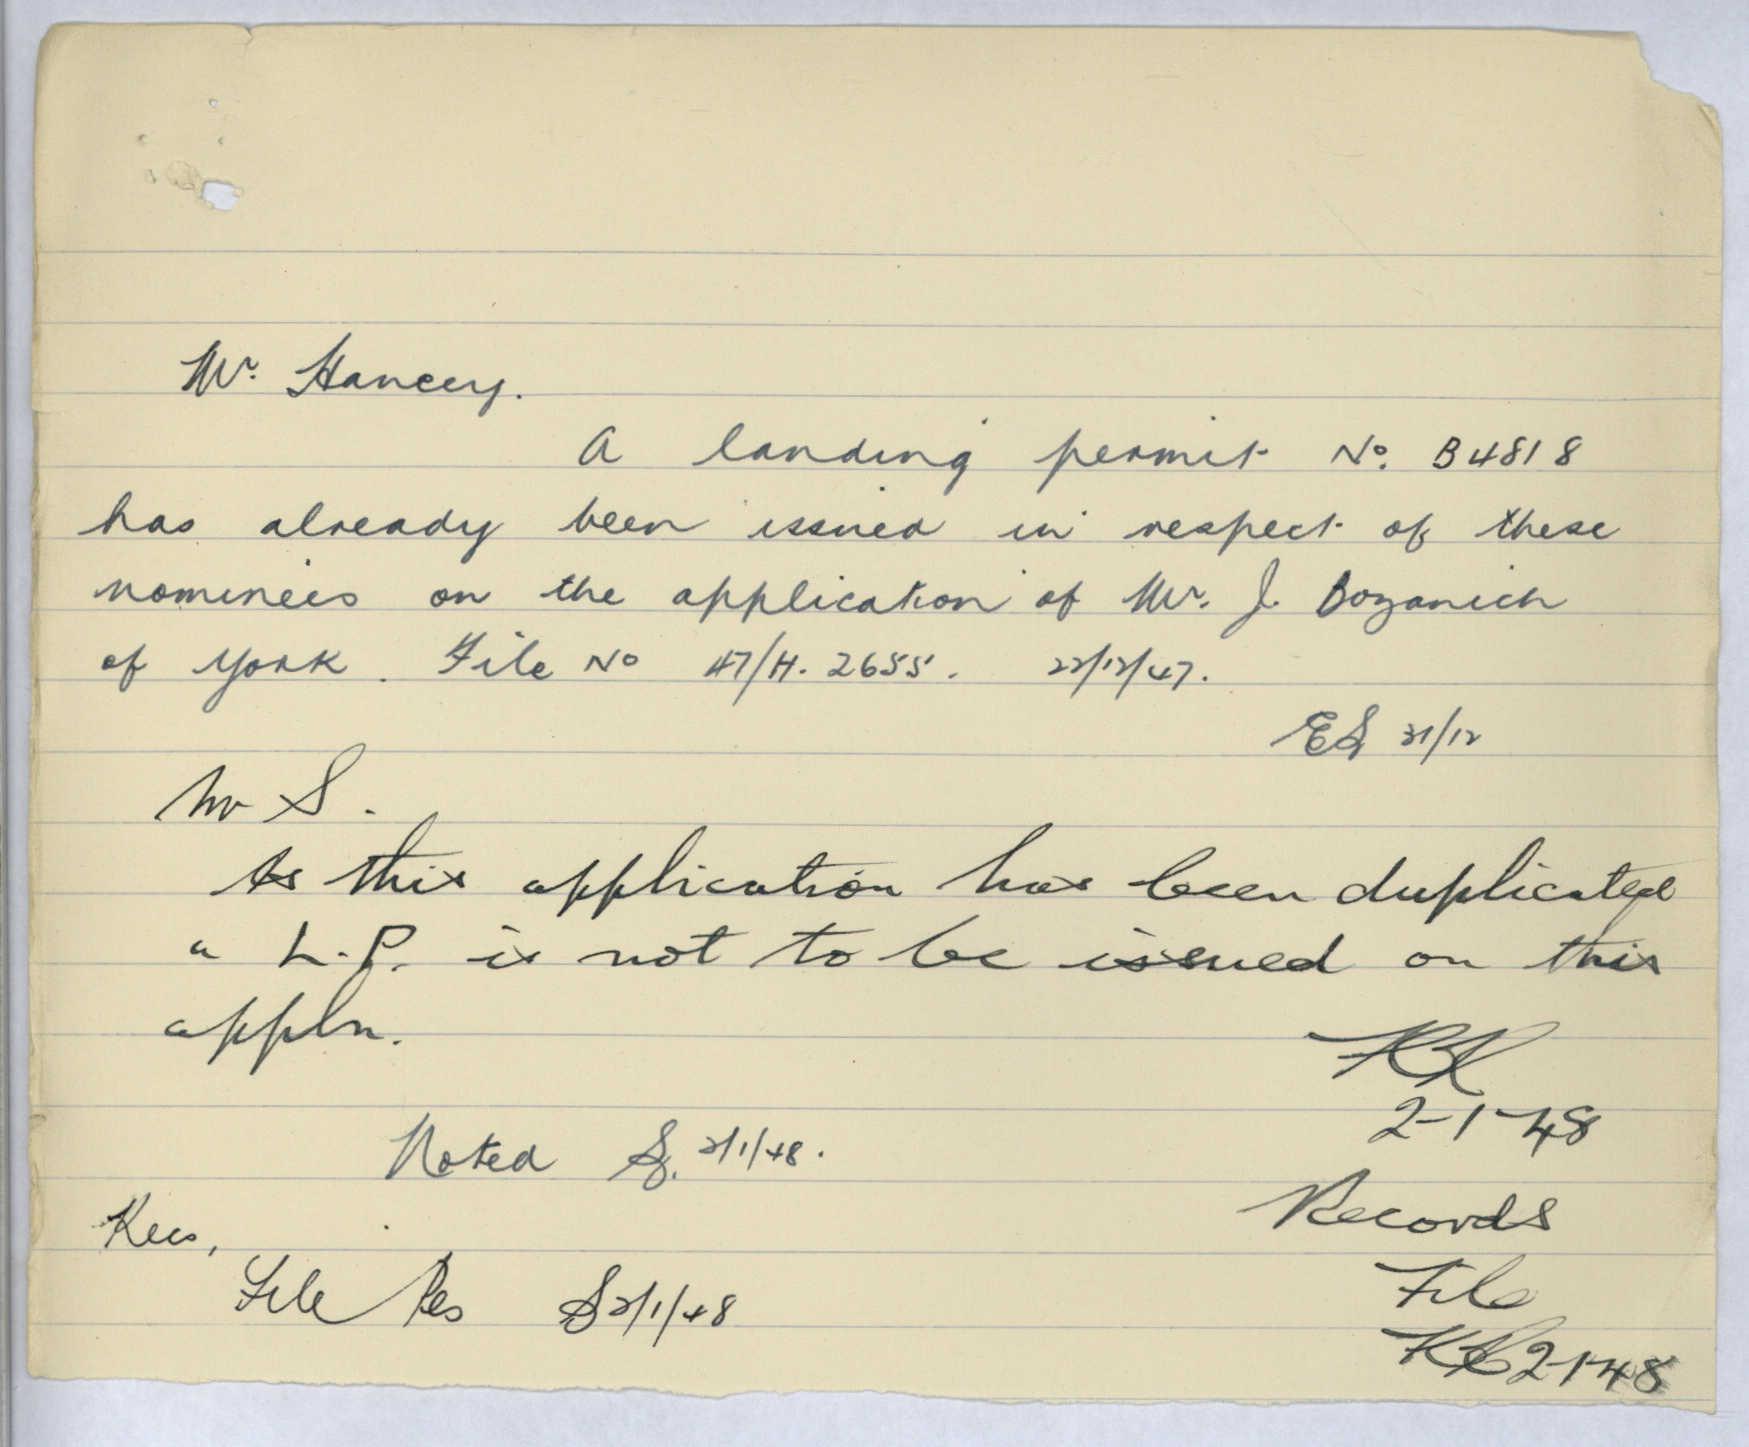 Mr. Hancey.
A landing permit No. B4818
has already been issued in respect of these
nominees on the application of Mr. J. Bozanich
of York. File No 47/H. 2655. 22/12/47.
ES 31/12
Mr S.
As this application has been duplicated
a L.P. is not to be issued on this
appln.
2-1-48
Noted S. 2/1/48.
Records
Recs,
File
File Res S 2/1/48
2-1-48